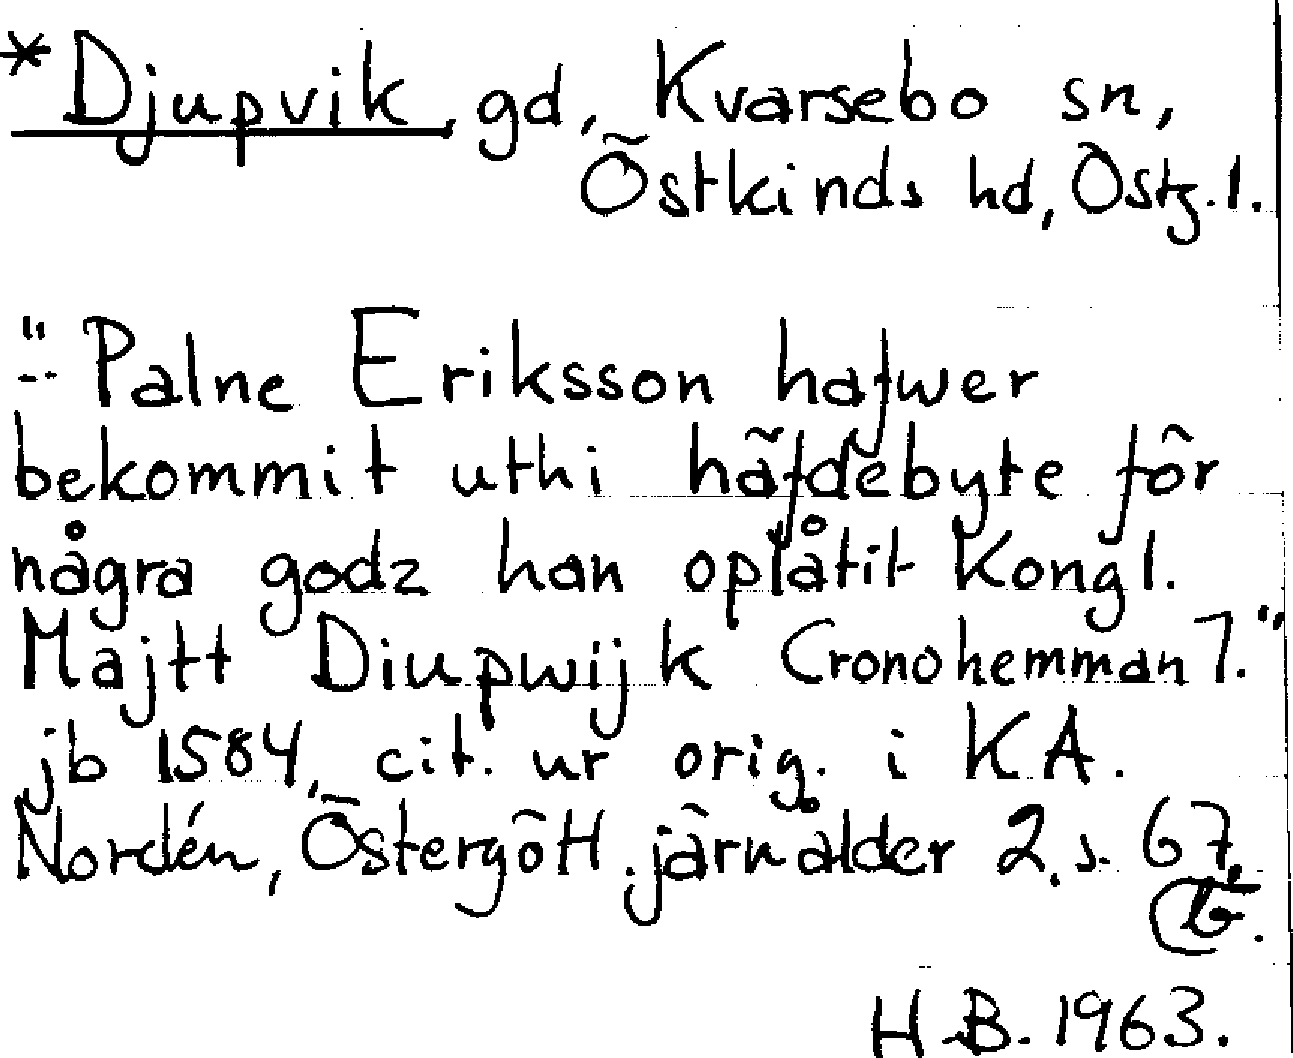 *Djupvik, gd, Kvarsebo sn,
Östkinds hd, Östg. l.
"-- Palne Eriksson hafwer
bekommit uthi häfdebyte för
några godz han oplåtit Kongl.
Majtt Diupwijk Cronohemman 1."
jb 1584, cit. ur orig. i KA.
Nordén, Östergötl. järnålder 2, s. 67.
H.B. 1963.